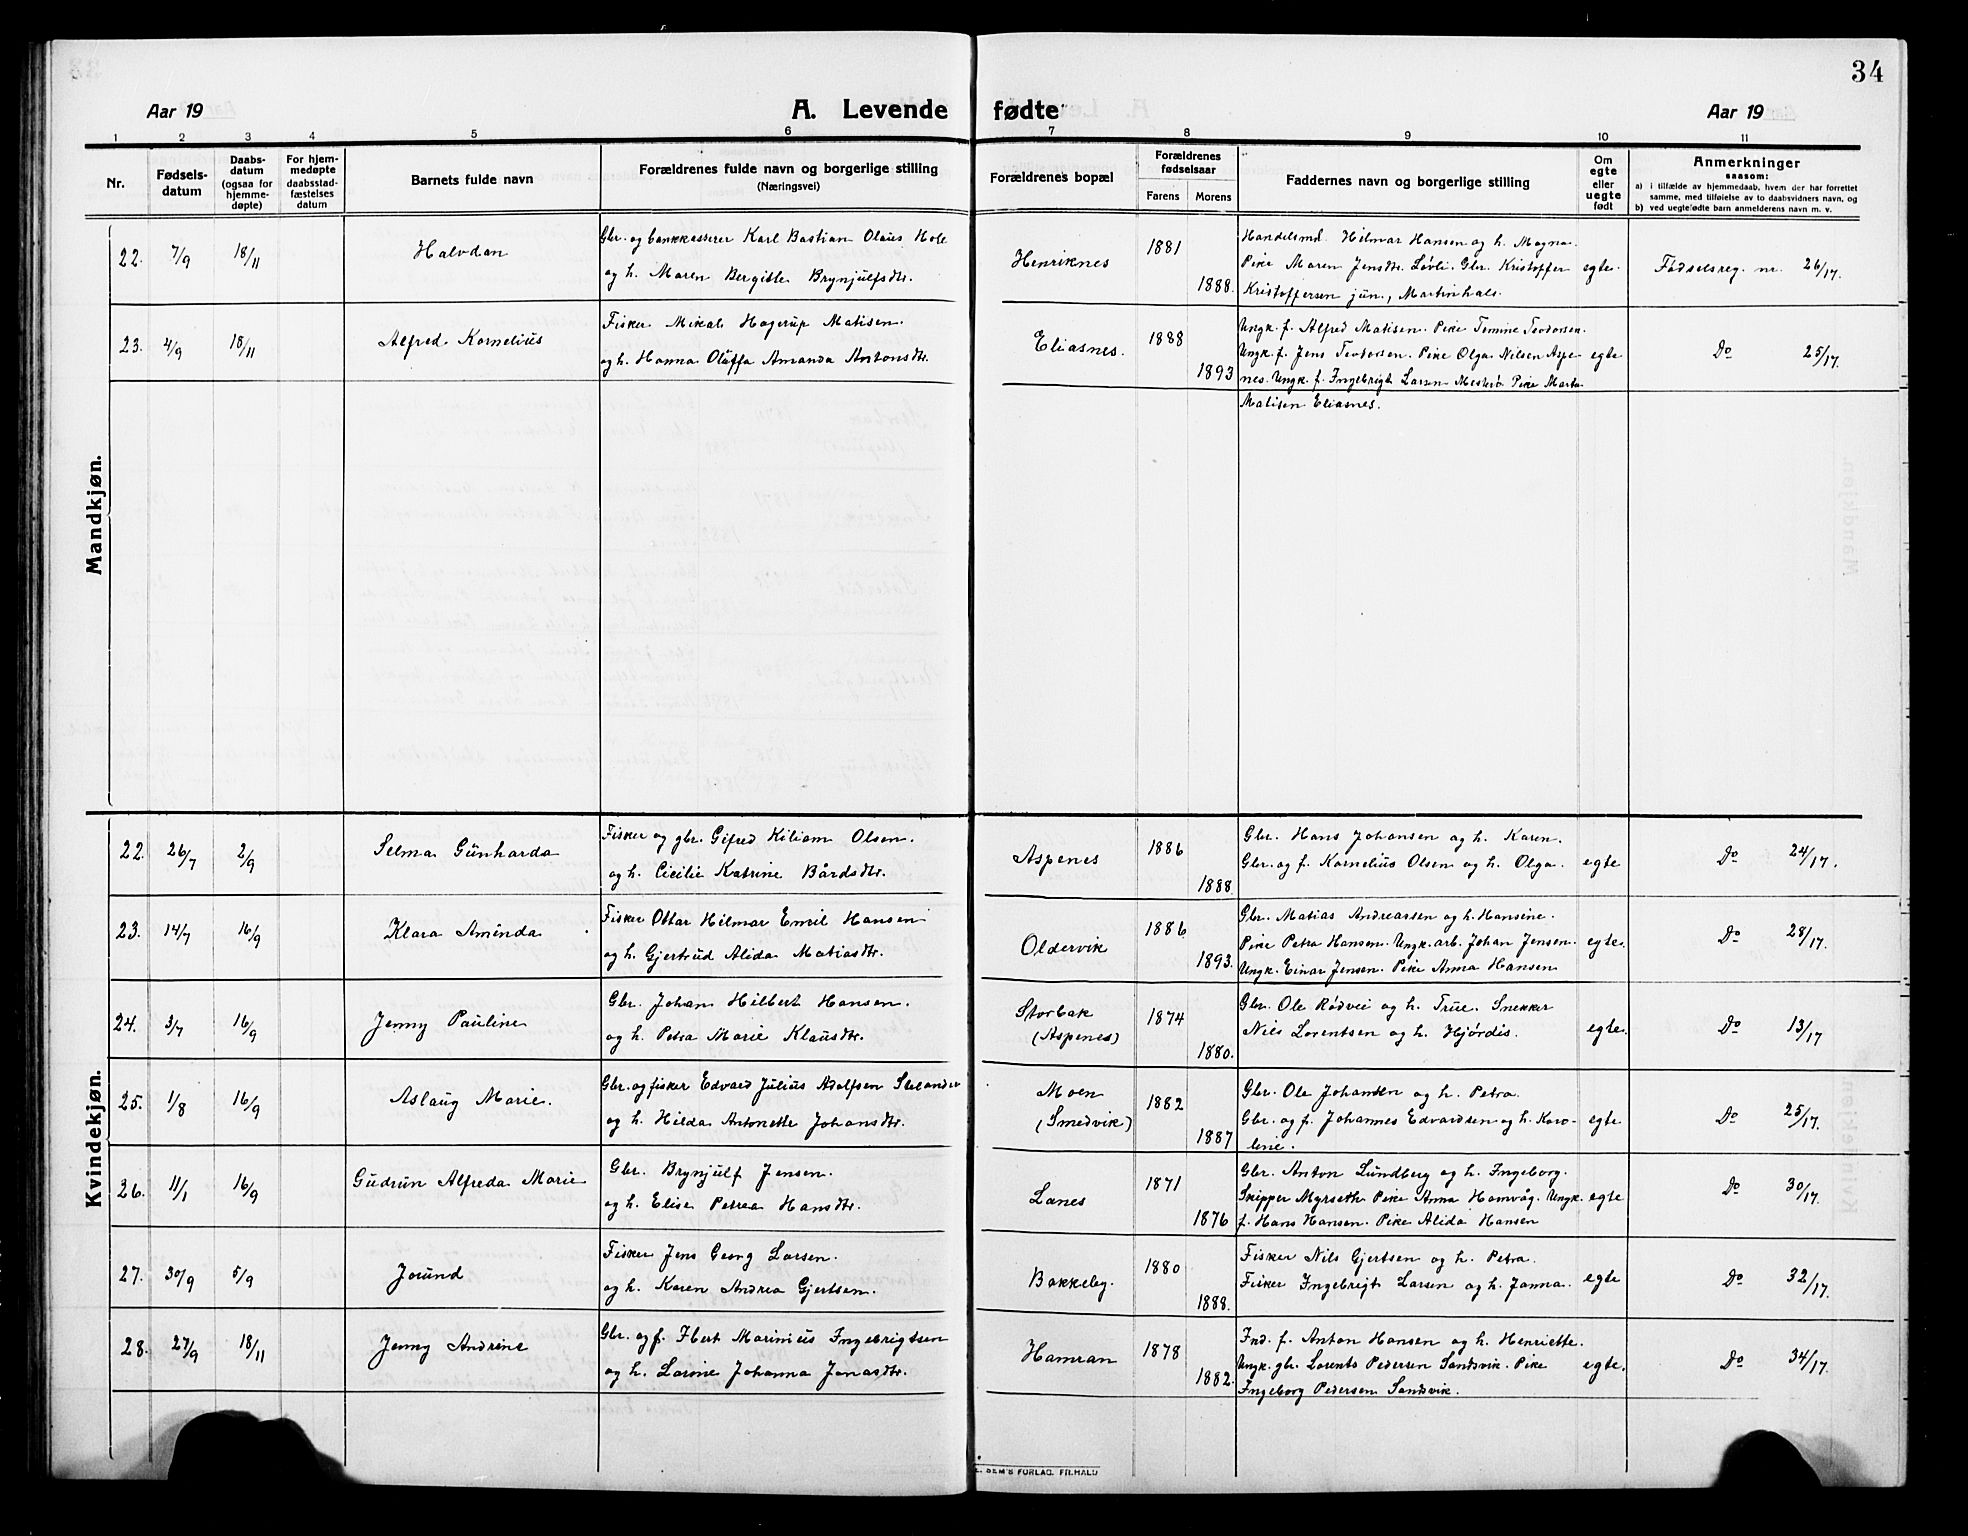 34
Aar 19
A. Levende fødte
Aar 19
1 2 3 4 5 6 7 8 9 10 11
Nr.
Fødsels-
datum
Daabs-
datum
(ogsaa for
hjemme-
døpte)
For hjem-
medøpte
daabsstad-
fæstelses
datum
Barnets fulde navn
Forældrenes fulde navn og borgerlige stilling
(Næringsvei)
Forældrenes bopæl
Forældrenes
fødselsaar
Farens Morens
Faddernes navn og borgerlige stilling
Om
egte
eller
uegte
født
Anmerkninger
saasom:
a) i tilfælde av hjemmedaab, hvem der har forrettet
samme, med tilføielse av to daabsvidners navn, og
b) ved uegtefødte barn anmelderens navn m. v.
Mandkjøn.
22. 7/9 18/11 Halvdan
Gbr. og bankkasserer Karl Bastian Olaus Hole
og h. Maren Bergitte Brynjulfsdtr.
Henriknes 1881 1888.
Handelsmd. Hilmar Hansen og h. Magna.
Pike Maren Jensdtr. Løvli. Gbr. Kristoffer
Kristoffersen jun., Martinhals.
egte. Fødselsreg. nr. 26/17.
23. 4/9 18/11 Alfred Kornelius
Fisker Mikal Hagerup Matisen.
og h. Hanna Oluffa Amanda Antonsdtr.
Eliasnes. 1888 1893
Ungk. f. Alfred Matisen. Pike Temine Teodorsen.
Ungk. f. Jens Teodorsen. Pike Olga Nilsen Aspe-
nes. Ungk. f. Ingebrigt Larsen Pike Marta
Matisen Eliasnes.
egte Do 25/17.
Kvindekjøn.
22. 26/7 2/9 Selma Gunharda
Fisker og gbr. Gifred Kiliam Olsen.
og h. Cicilie Katrine Bårdsdtr.
Aspenes 1886 1888.
Gbr. Hans Johansen og h. Karen.
Gbr. og f. Kornelius Olsen og h. Olga.
egte Do 24/17.
23. 14/7 16/9 Klara Aminda
Fisker Ottar Hilmar Emil Hansen
og h. Gjertrud Alida Matiasdtr.
Oldervik 1886 1893.
Gbr. Matias Andreassen og h. Hansine.
Pike Petra Hansen. Ungk. arb. Johan Jensen.
Ungk. Einar Jensen. Pike Anna Hansen
egte. Do 28/17.
24. 3/7 16/9 Jenny Pauline
Gbr. Johan Hilbert Hansen.
og h. Petra Marie Klausdtr.
Storbak
(Aspenes)
1874 1880.
Gbr. Ole Rødvei og h. True. Snekker
Nils Lorentsen og h. Hjørdis.
egte. Do 13/17
25. 1/8 16/9 Aslaug Marie.
Gbr. og fisker Edvard Julius Adolfsen
og h. Hilda Antonette Johansdtr.
Moen
(Smedvik)
1882 1887
Gbr. Ole Johansen og h. Petra.
Gbr. og f. Johannes Edvardsen og h. Karo-
line.
egte Do 25/17.
26. 11/1 16/9 Gudrun Alfreda Marie
Gbr. Brynjulf Jensen.
og h. Elise Petrea Hansdtr.
Lanes 1871 1876
Gbr. Anton Lundberg og h. Ingeborg.
Skipper Myrseth Pike Anna Hamvåg. Ungk.
f. Hans Hansen. Pike Alida Hansen
egte Do 30/17.
27. 30/9 5/9 Jorund
Fisker Jens Georg Larsen.
og h. Karen Andrea Gjertsen.
Bakkeby. 1880 1888.
Fisker Nils Gjertsen og h. Petra.
Fisker Ingebrigt Larsen og h. Janna.
egte Do 32/17.
28. 27/9 18/11 Jenny Andrine
Gbr. og f. Ibert Marinius Ingebrigtsen
og h. Larine Johanna Jonasdtr.
Hamran 1878 1882.
Ind. f. Anton Hansen og h. Henriette.
Ungk. gbr. Lorents Pedersen Sandsvik. Pike
Ingeborg Pedersen Sandsvik.
egte. Do 34/17.
SEM'S FORLAG. FR.HALD